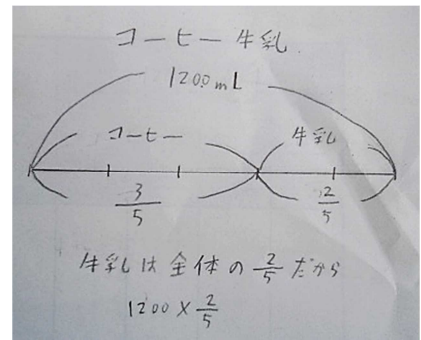 コーヒー牛乳
1200mL
コーヒー 牛乳
3/5 2/5
牛乳は全体の2/5だから
1200×2/5